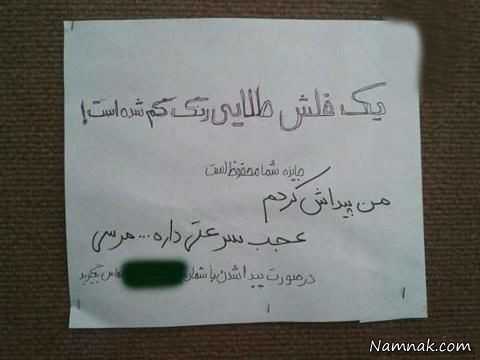 یک فلش طلایی رنگ گم شده است!
جایزه شما محفوظ است
من پیداش کردم
عجب سرعتی داره... مرسی
در صورت پیدا شدن با شماره تماس بگیرید
Namnak.com